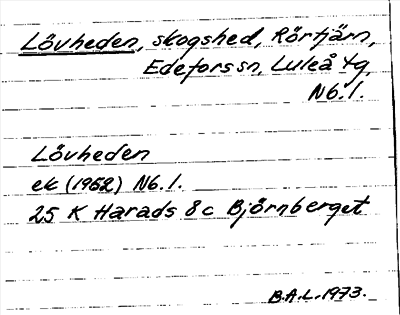 Lövheden, skogshed, Rörtjärn,
Edeforssn, Luleå tg,
Nb.l.
Lövheden
ek (1952) Nb.l.
25 K Harads 8c Björnberget
B.A.L. 1973.